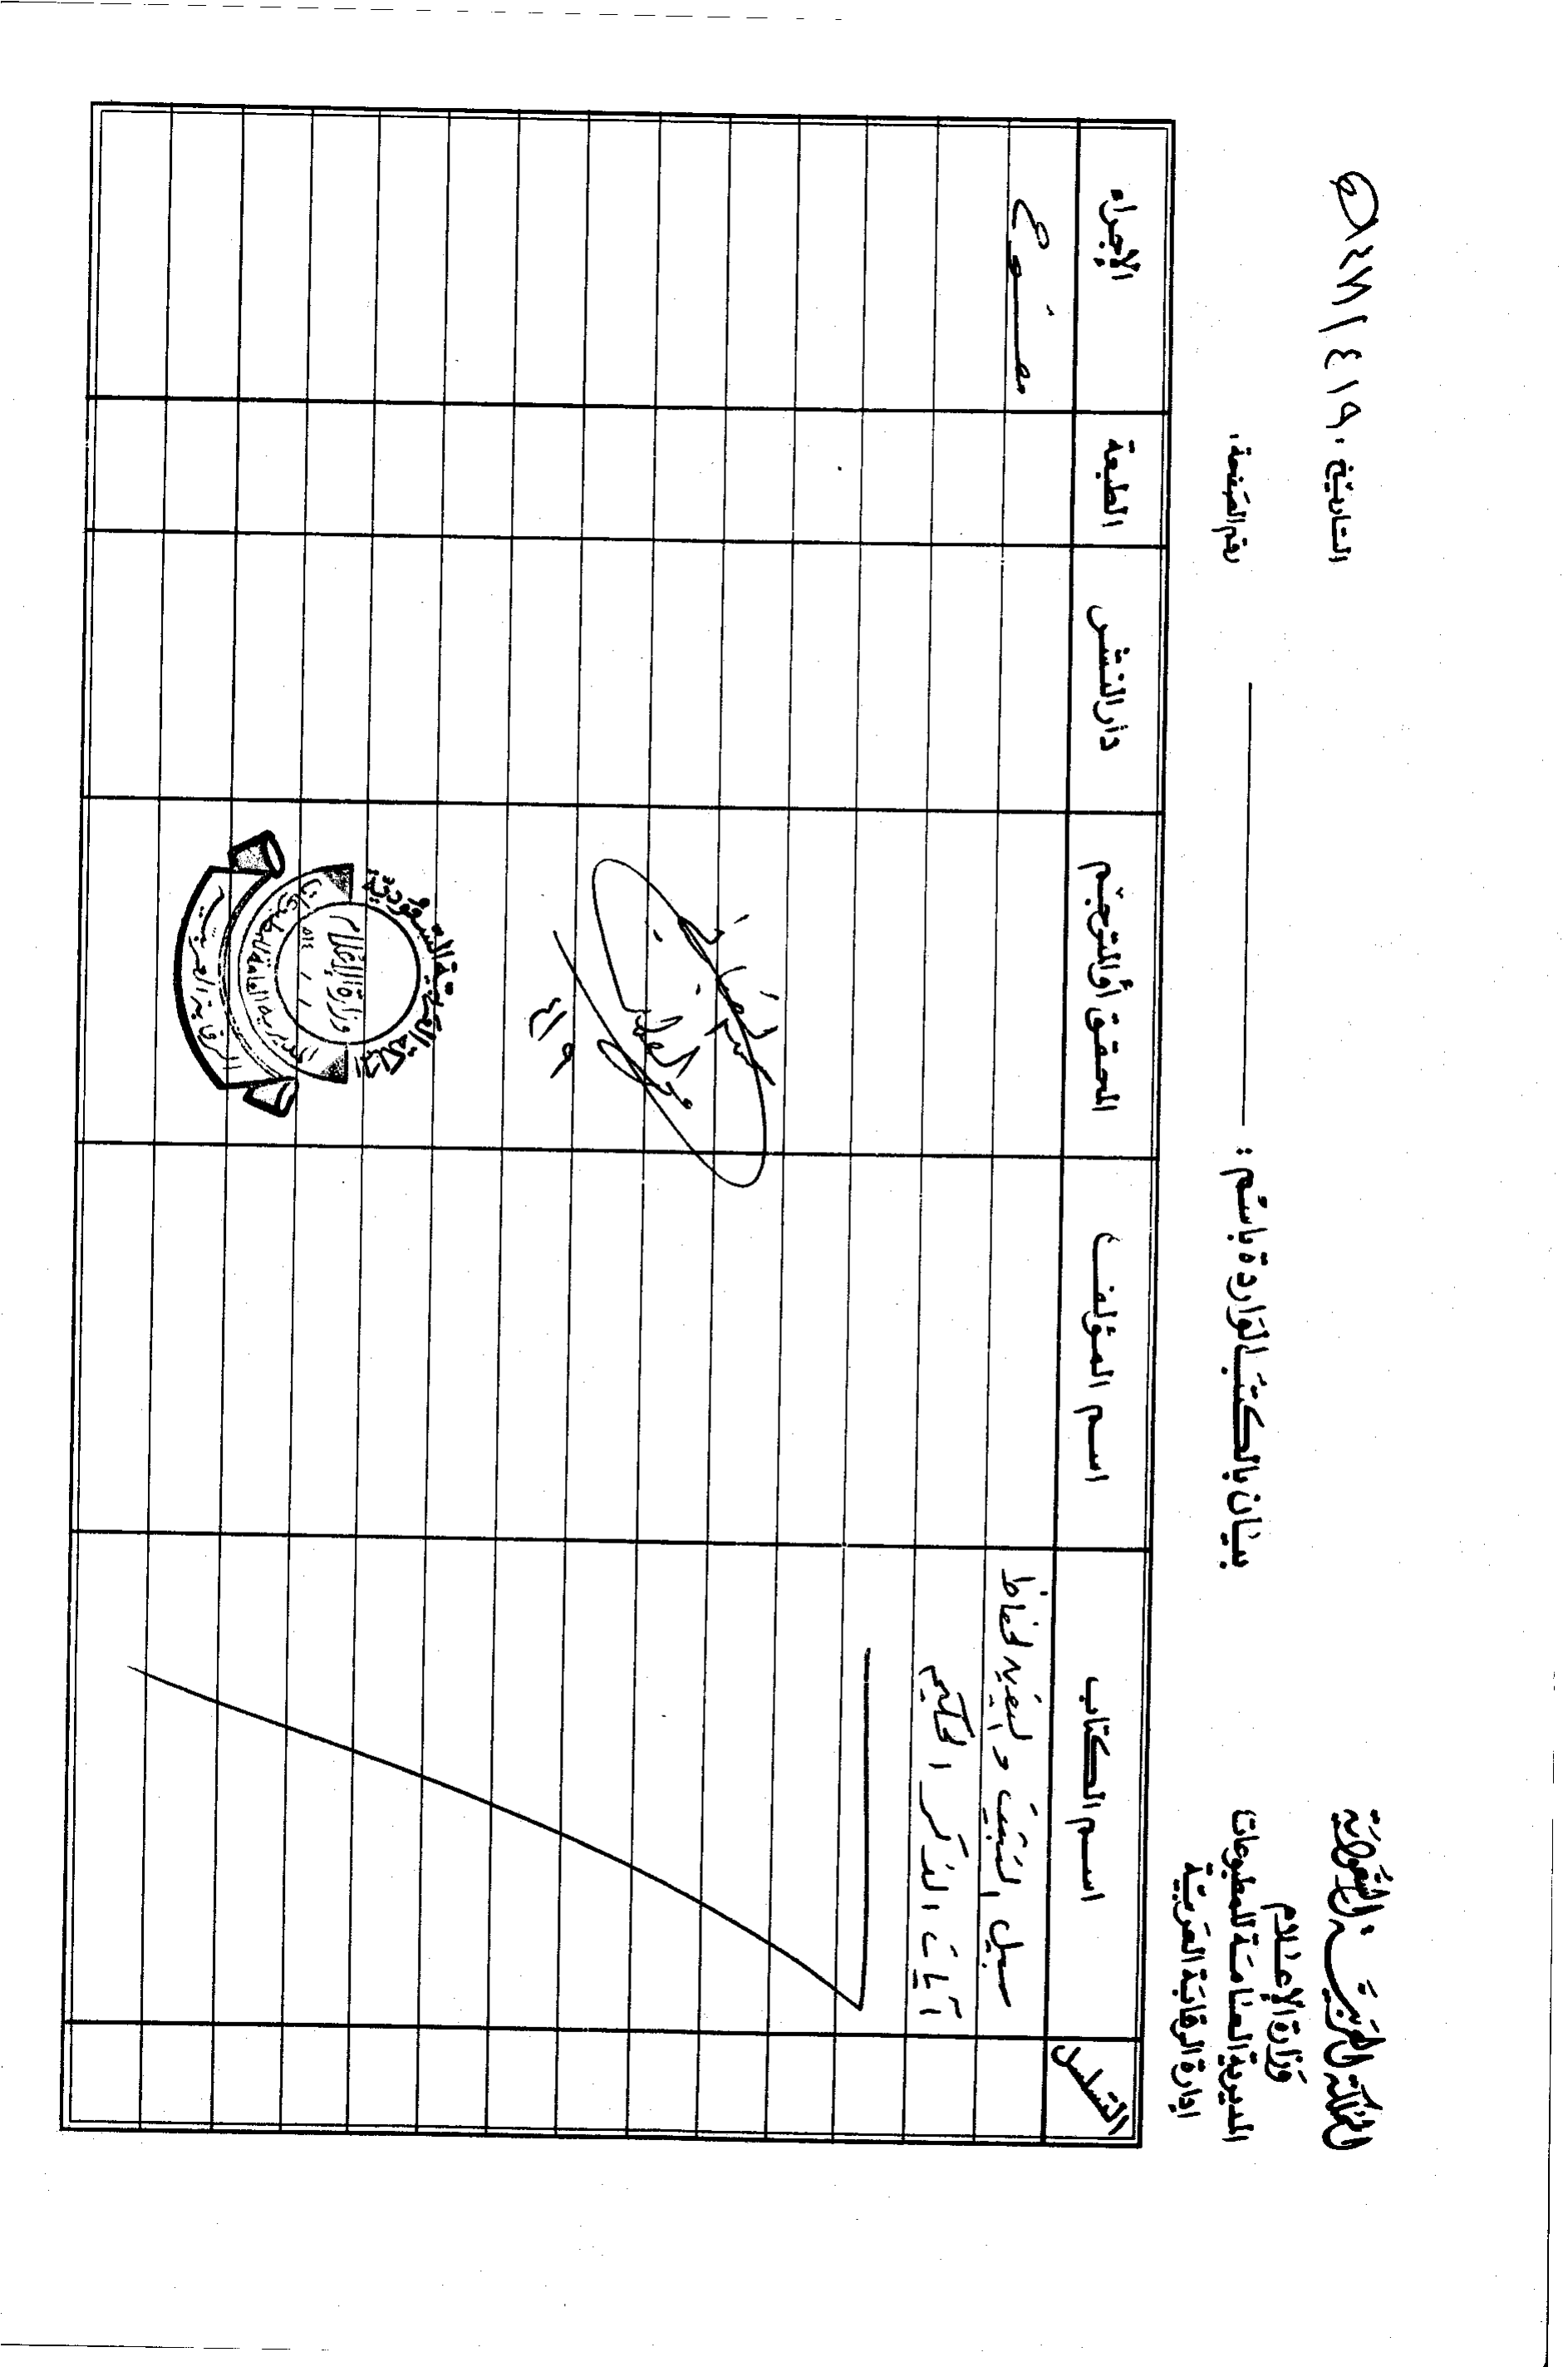 المملكة العربية السعودية
وزارة الإعلام
المديرية العامة للمطبوعات
إدارة الرقابة العربية
التاريخ:
رقم الصفحة:
بيان بالكتب الواردة باسم:
التسلسل
اسم الكتاب
اسم المؤلف
المحقق أو المترجم
دار النشر
الطبعة
الإجراء
سبيل التثبيت واليقين لحفاظ
آيات الذكر الحكيم
ممنوع
المملكة العربية السعودية
وزارة الإعلام
الرقابة العربية